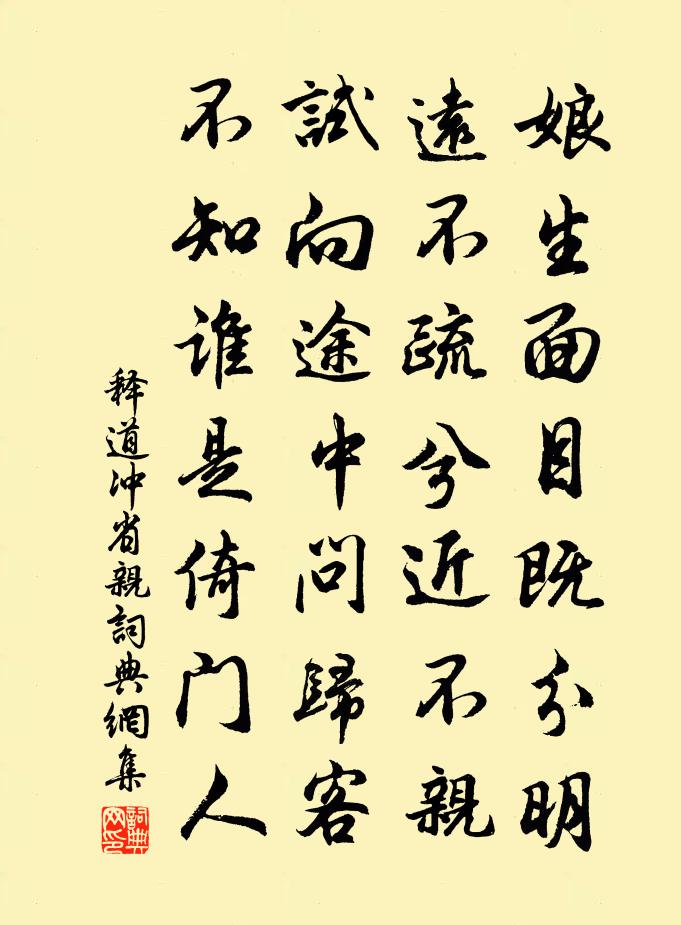 娘生面目既分明
遠不疏兮近不親
試向途中問歸客
不知誰是倚门人
释道冲省親詞典網集
詞典网印